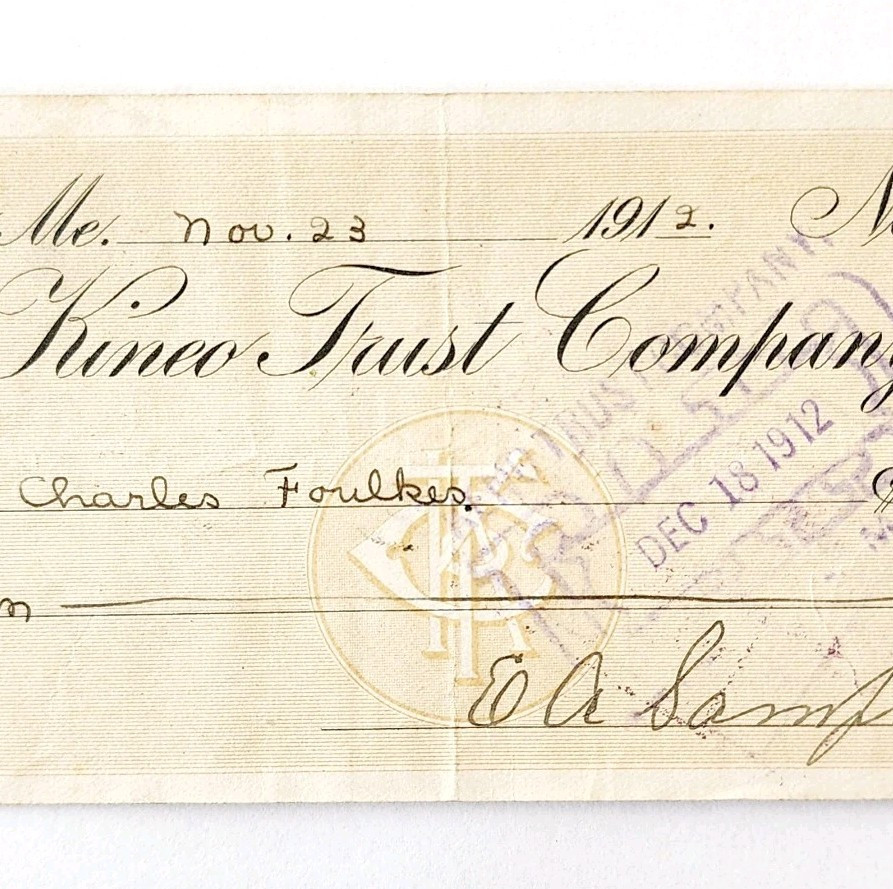 Me. Nov. 23 1912. N
Kineo Trust Company
Charles Foulkes.
TRUST COMPANY,
DEC 18 1912
E A Samp